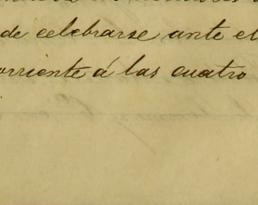 de celebrarse ante el
orriente á las cuatro